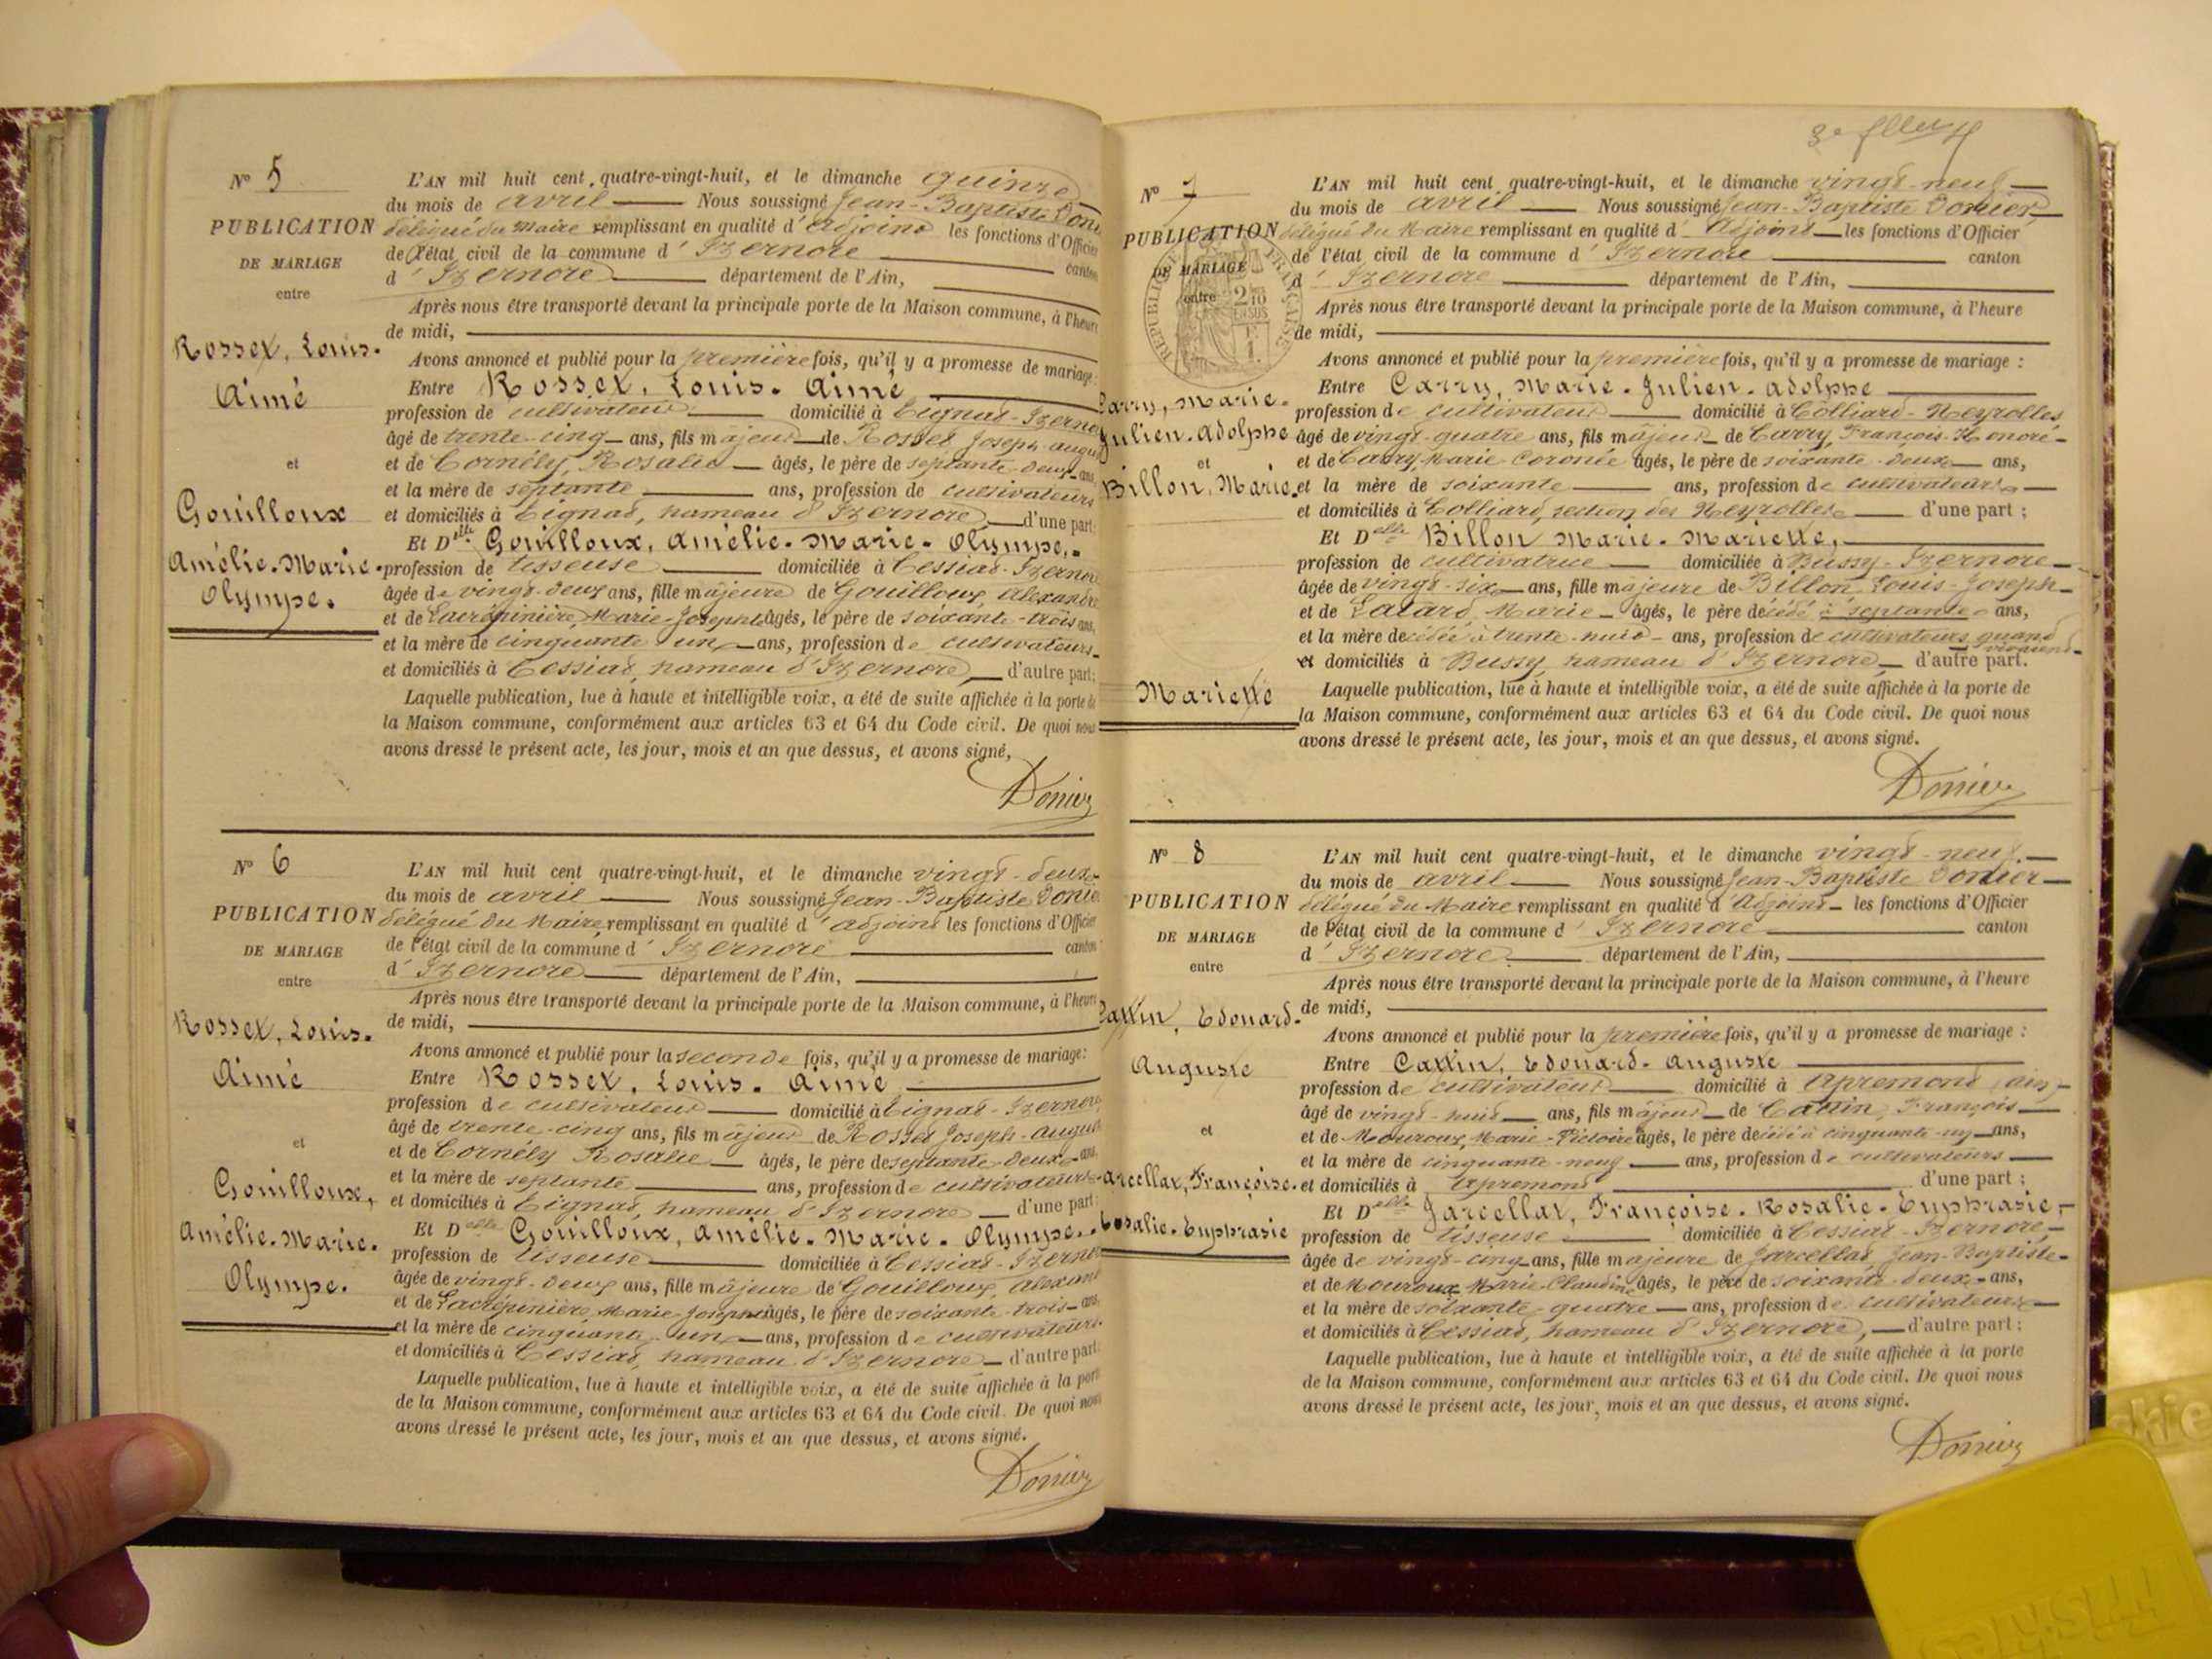 Nº 5
PUBLICATION
DE MARIAGE
entre
Rosset, Louis-
Aimé
et
Gouilloux
Amélie-Marie-
Olympe.
L'AN mil huit cent quatre-vingt-huit, et le dimanche quinze
du mois de avril Nous soussigné Jean-Baptiste
délégué du Maire remplissant en qualité d'adjoint les fonctions d'Officier
de l'état civil de la commune d'Izernore canton
d'Izernore département de l'Ain,
Après nous être transporté devant la principale porte de la Maison commune, à l'heure
de midi,
Avons annoncé et publié pour la première fois, qu'il y a promesse de mariage:
Entre Rosset, Louis-Aimé
profession de cultivateur domicilié à Tignat-
âgé de trente-cinq ans, fils majeur de Rosset Joseph
et de Cornély, Rosalie âgés, le père de septante-deux ans,
et la mère de septante ans, profession de cultivateurs
et domiciliés à Tignat, hameau d'Izernore, d'une part;
Et Delle Gouilloux, Amélie-Marie-Olympe,
profession de tisseuse domiciliée à Cessiat-Izernore
âgée de vingt-deux ans, fille majeure de Gouilloux, Alexandre
et de Lacrépinière, Marie-Josephte âgés, le père de soixante-trois ans,
et la mère de cinquante-un ans, profession de cultivateurs
et domiciliés à Cessiat, hameau d'Izernore, d'autre part;
Laquelle publication, lue à haute et intelligible voix, a été de suite affichée à la porte de
la Maison commune, conformément aux articles 63 et 64 du Code civil. De quoi nous
avons dressé le présent acte, les jour, mois et an que dessus, et avons signé,
Donier
Nº 6
PUBLICATION
DE MARIAGE
entre
Rosset, Louis-
Aimé
et
Gouilloux,
Amélie-Marie-
Olympe.
L'AN mil huit cent quatre-vingt-huit, et le dimanche vingt-deux
du mois de avril Nous soussigné Jean-Baptiste
délégué du Maire remplissant en qualité d'adjoint les fonctions d'Officier
de l'état civil de la commune d'Izernore canton
d'Izernore département de l'Ain,
Après nous être transporté devant la principale porte de la Maison commune, à l'heure
de midi,
Avons annoncé et publié pour la seconde fois, qu'il y a promesse de mariage:
Entre Rosset, Louis-Aimé
profession de cultivateur domicilié à Tignat-Izernore
âgé de trente-cinq ans, fils majeur de Rosset Joseph
et de Cornély Rosalie âgés, le père de septante-deux ans,
et la mère de septante ans, profession de cultivateurs
et domiciliés à Tignat, hameau d'Izernore d'une part;
Et Delle Gouilloux, Amélie-Marie-Olympe,
profession de tisseuse domiciliée à Cessiat-
âgée de vingt-deux ans, fille majeure de Gouilloux,
et de Lacrépinière, Marie-Josephte âgés, le père de soixante-trois ans,
et la mère de cinquante-un ans, profession de cultivateurs
et domiciliés à Cessiat, hameau d'Izernore d'autre part;
Laquelle publication, lue à haute et intelligible voix, a été de suite affichée à la porte
de la Maison commune, conformément aux articles 63 et 64 du Code civil. De quoi nous
avons dressé le présent acte, les jour, mois et an que dessus, et avons signé.
Donier
Nº 7
PUBLICATION
DE MARIAGE
entre
Carry, Marie-
Julien-Adolphe
et
Billon, Marie-
Mariette
L'AN mil huit cent quatre-vingt-huit, et le dimanche vingt-neuf
du mois de avril Nous soussigné Jean-Baptiste Donier
délégué du Maire remplissant en qualité d'Adjoint les fonctions d'Officier
de l'état civil de la commune d'Izernore canton
d'Izernore département de l'Ain,
Après nous être transporté devant la principale porte de la Maison commune, à l'heure
de midi,
Avons annoncé et publié pour la première fois, qu'il y a promesse de mariage :
Entre Carry, Marie-Julien-Adolphe
profession de cultivateur domicilié à Colliard-Neyrolles
âgé de vingt-quatre ans, fils majeur de Carry, François-Honoré-
et de Carry, Marie Coronée âgés, le père de soixante-deux ans,
et la mère de soixante ans, profession de cultivateurs
et domiciliés à Colliard, section des Neyrolles d'une part ;
Et Delle Billon Marie-Mariette,
profession de cultivatrice domiciliée à Bussy-Izernore
âgée de vingt-six ans, fille majeure de Billon Louis-Joseph
et de Marie âgés, le père décédé à septante ans,
et la mère décédée à trente-huit ans, profession de cultivateurs quand vivaient
et domiciliés à Bussy, hameau d'Izernore d'autre part.
Laquelle publication, lue à haute et intelligible voix, a été de suite affichée à la porte de
la Maison commune, conformément aux articles 63 et 64 du Code civil. De quoi nous
avons dressé le présent acte, les jour, mois et an que dessus, et avons signé.
Donier
Nº 8
PUBLICATION
DE MARIAGE
entre
Cattin, Edouard-
Auguste
et
Jarcellat, Françoise-
Rosalie-Euphrasie
L'AN mil huit cent quatre-vingt-huit, et le dimanche vingt-neuf.
du mois de avril Nous soussigné Jean-Baptiste Donier
délégué du Maire remplissant en qualité d'Adjoint les fonctions d'Officier
de l'état civil de la commune d'Izernore canton
d'Izernore département de l'Ain,
Après nous être transporté devant la principale porte de la Maison commune, à l'heure
de midi,
Avons annoncé et publié pour la première fois, qu'il y a promesse de mariage :
Entre Cattin, Edouard-Auguste
profession de cultivateur domicilié à Apremont, Ain,
âgé de vingt-huit ans, fils majeur de Cattin, François
et de Mouroux, Marie-Victoire âgés, le père décédé à cinquante-un ans,
et la mère de cinquante-neuf ans, profession de cultivateurs
et domiciliés à Apremont d'une part ;
Et Delle Jarcellat, Françoise-Rosalie-Euphrasie,
profession de tisseuse domiciliée à Cessiat-Izernore,
âgée de vingt-cinq ans, fille majeure de Jarcellat Jean-Baptiste
et de Mouroux Marie-Claudine âgés, le père de soixante-deux ans,
et la mère de soixante-quatre ans, profession de cultivateurs
et domiciliés à Cessiat, hameau d'Izernore, d'autre part ;
Laquelle publication, lue à haute et intelligible voix, a été de suite affichée à la porte
de la Maison commune, conformément aux articles 63 et 64 du Code civil. De quoi nous
avons dressé le présent acte, les jour, mois et an que dessus, et avons signé.
Donier